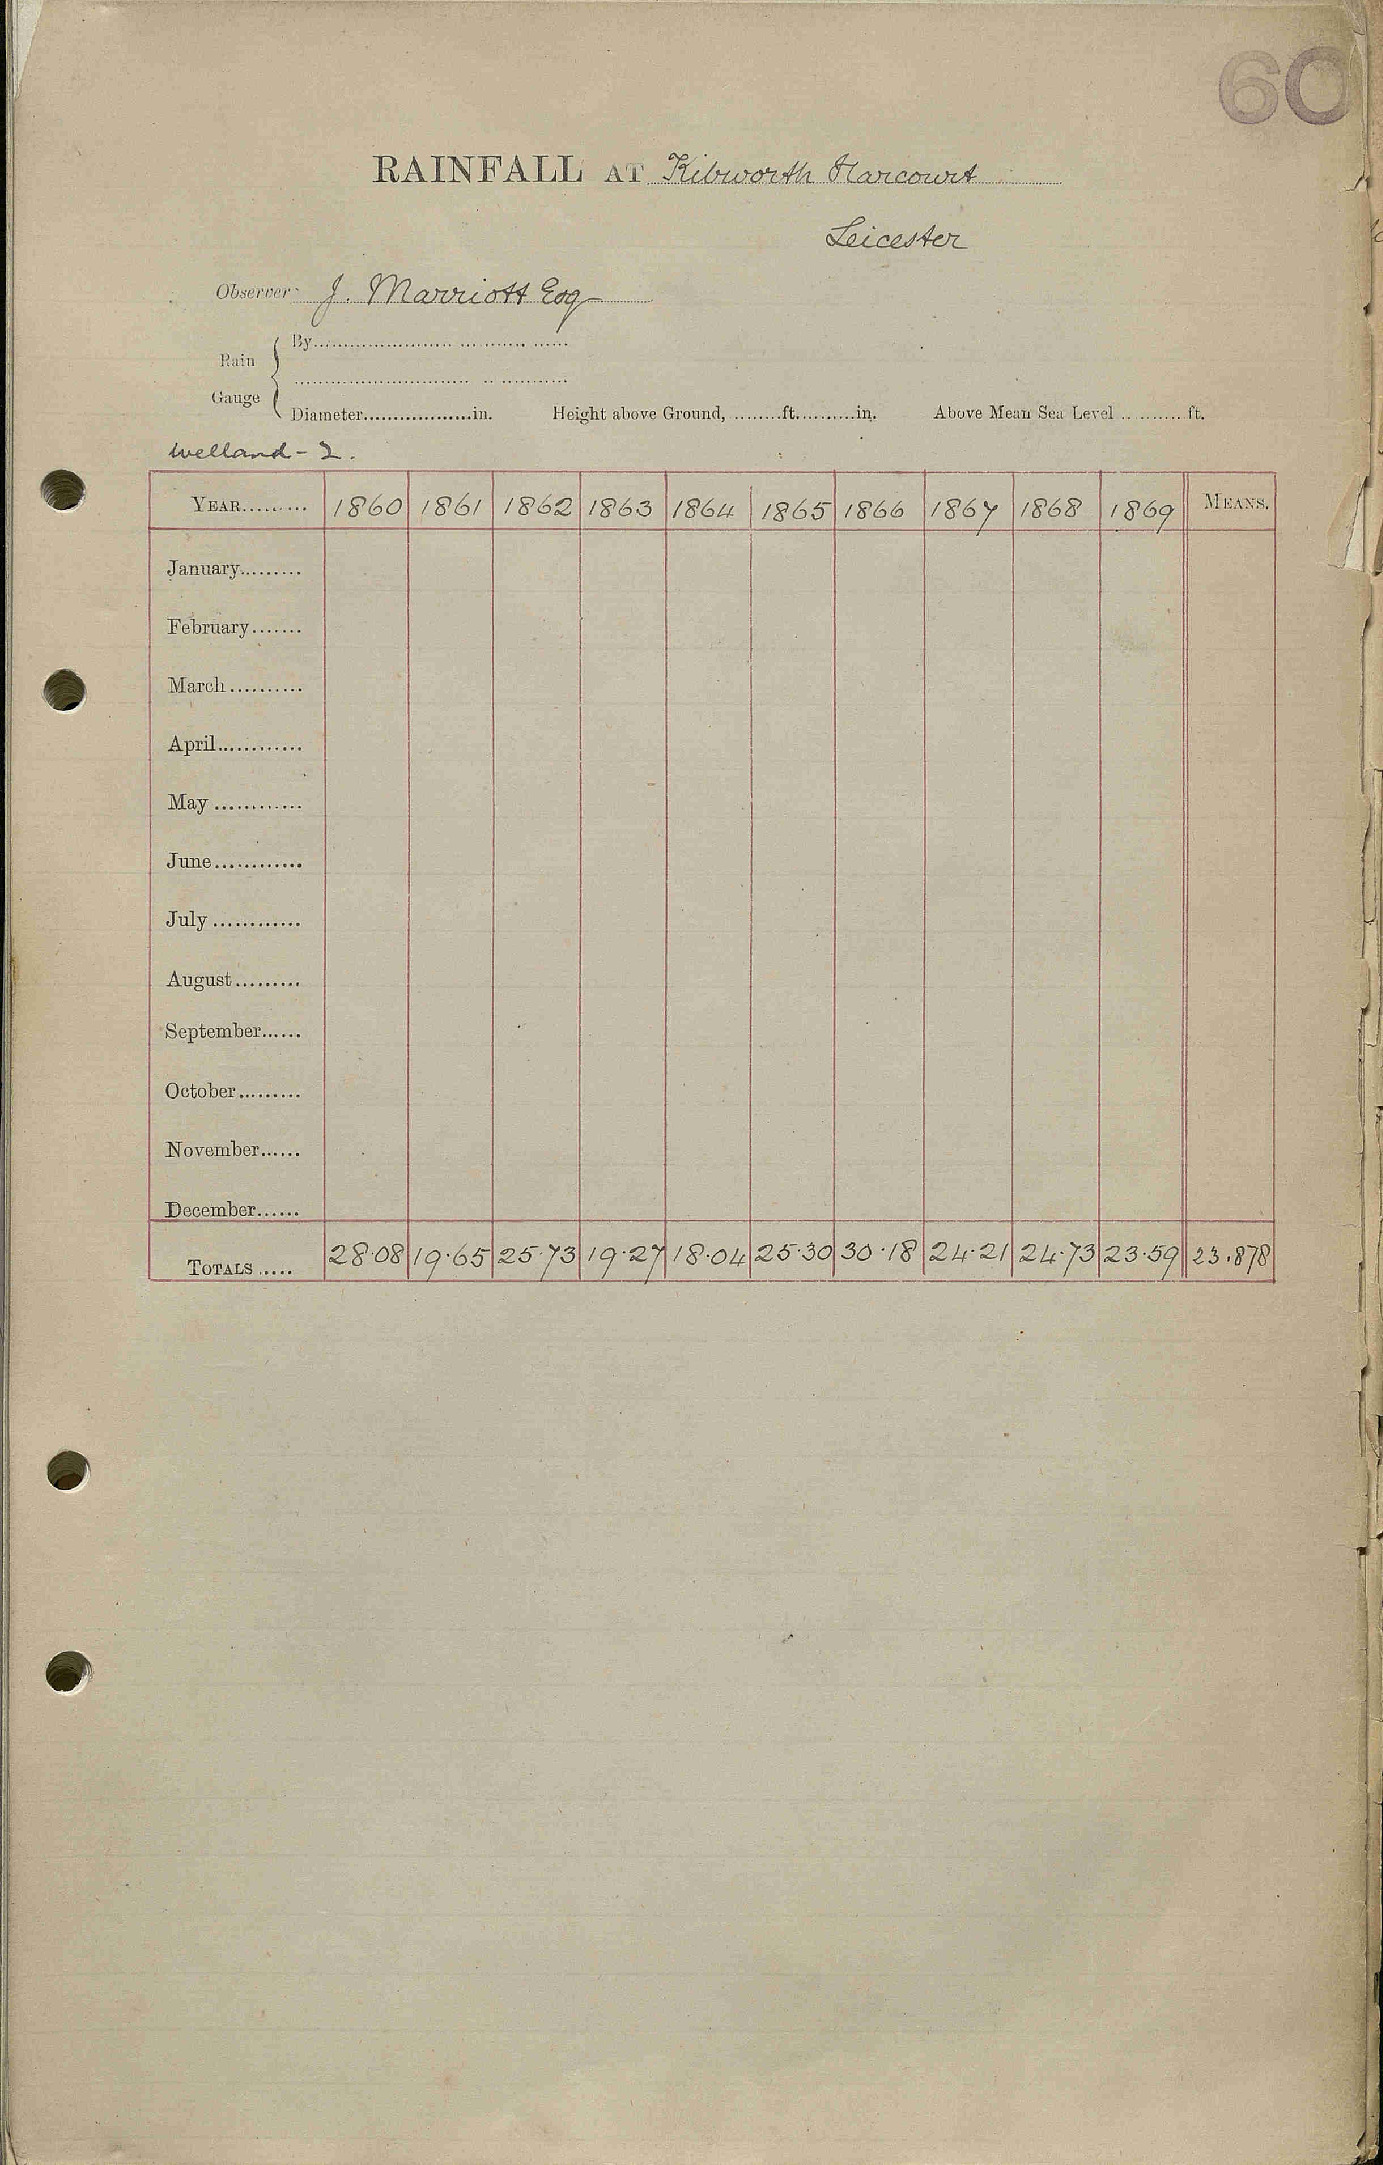 60
RAINFALL AT Kibworth Harcourt
Leicester
Observer J. Marriott Esq
Rain Gauge
By
Diameter in. Height above Ground, ft. in. Above Mean Sea Level ft.
Welland - 2.
YEAR 1860 1861 1862 1863 1864 1865 1866 1867 1868 1869 MEANS.
January
February
March
April
May
June
July
August
September
October
November
December
TOTALS 28.08 19.65 25.73 19.27 18.04 25.30 30.18 24.21 24.73 23.59 23.878